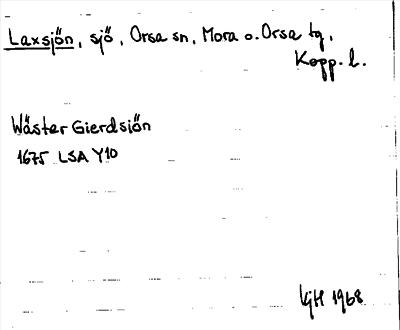 Laxsjön, sjö, Orsa sn, Mora o. Orsa tg,
Kopp. l.
Wäster Gierdsiön
1675 LSA Y10
GH 1968